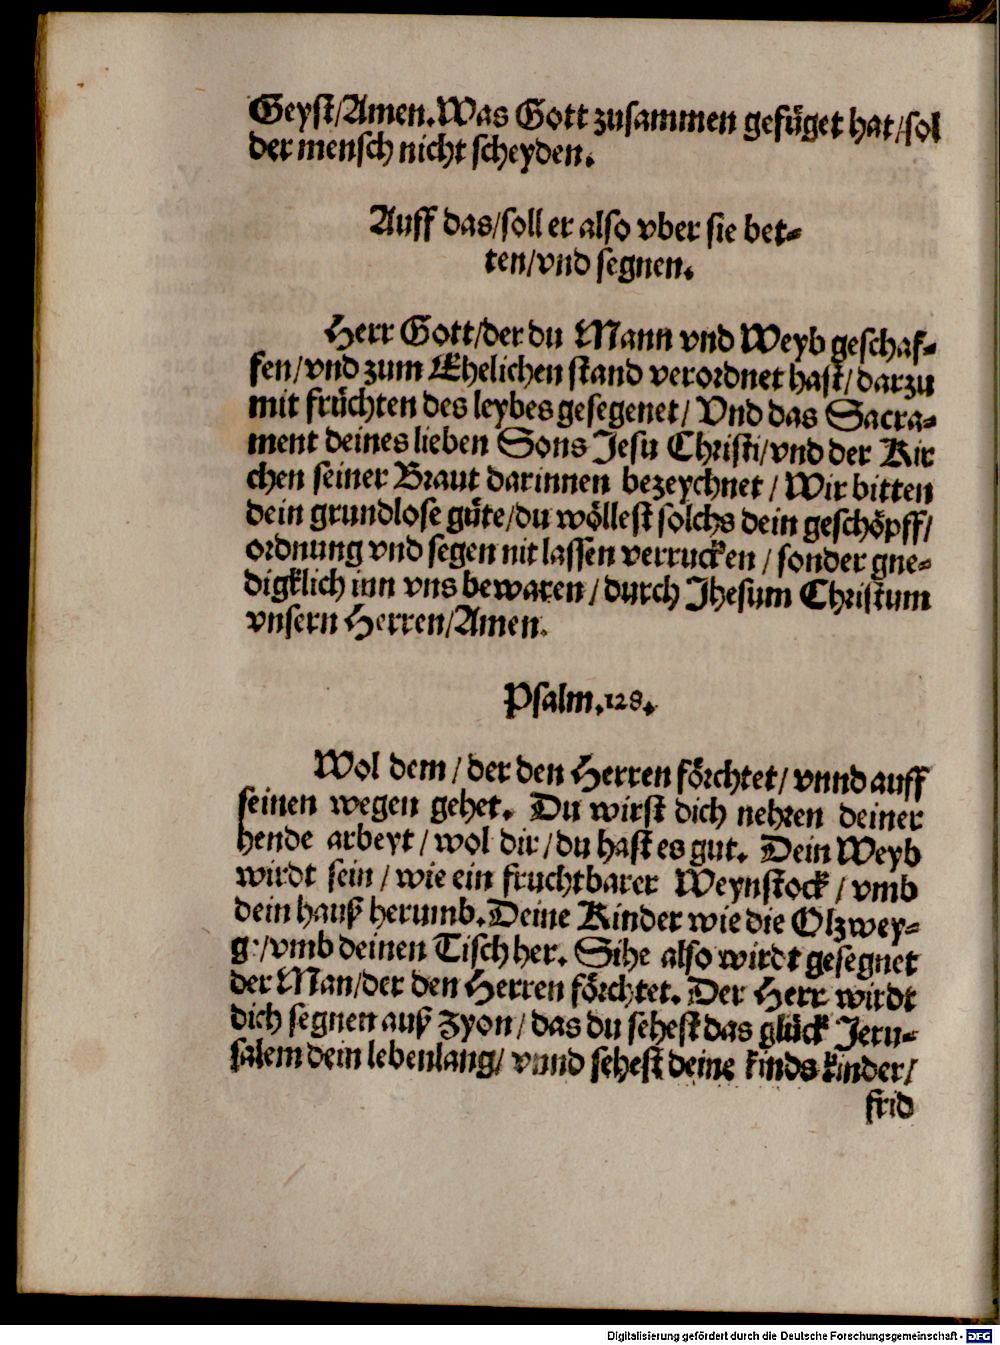 Geyst/Amen.Was Gott zusammen gefüget hat/sol
der mensch nicht scheyden.
Auff das/soll er also vber sie bet-
ten/vnd segnen.
Herr Gott/der du Mann vnd Weyb geschaf-
fen/vnd zum Ehelichen stand verordnet hast/darzu
mit früchten des leybes gesegenet/Vnd das Sacra-
ment deines lieben Sons Jesu Christi/vnd der Kir
chen seiner Braut darinnen bezeychnet/Wir bitten
dein grundlose güte/du wöllest solchs dein geschöpff/
ordnung vnd segen nit lassen verrucken/sonder gne-
digklich inn vns bewaren/durch Jhesum Christum
vnsern Herren/Amen.
Psalm.128.
Wol dem/der den Herren förchtet/vnnd auff
seinen wegen gehet. Du wirst dich nehren deiner
hende arbeyt/wol dir/du hast es gut. Dein Weyb
wirdt sein/wie ein fruchtbarer Weynstock/vmb
dein hauß herumb.Deine Kinder wie die Olzwey-
ge/vmb deinen Tisch her. Sihe also wirdt gesegnet
der Man/der den Herren förchtet. Der Herr wirdt
dich segnen auß Zyon/das du sehest das glück Jeru-
salem dein lebenlang/vnnd sehest deine kinds kinder/
frid
Digitalisierung gefördert durch die Deutsche Forschungsgemeinschaft - DFG